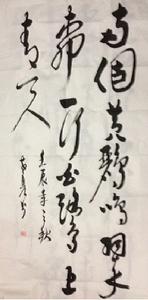 两個黄鸝鳴翠
柳一行白鷺上
青天
壬辰年之秋